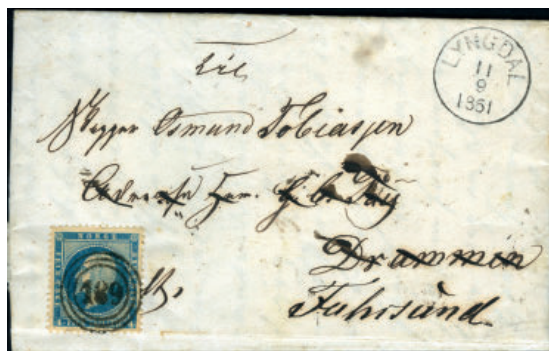 LYNGDAL
11
9
1861
Til
Skipper Osmund Tobiassen
Drammen
Fahrsund
NORGE
189